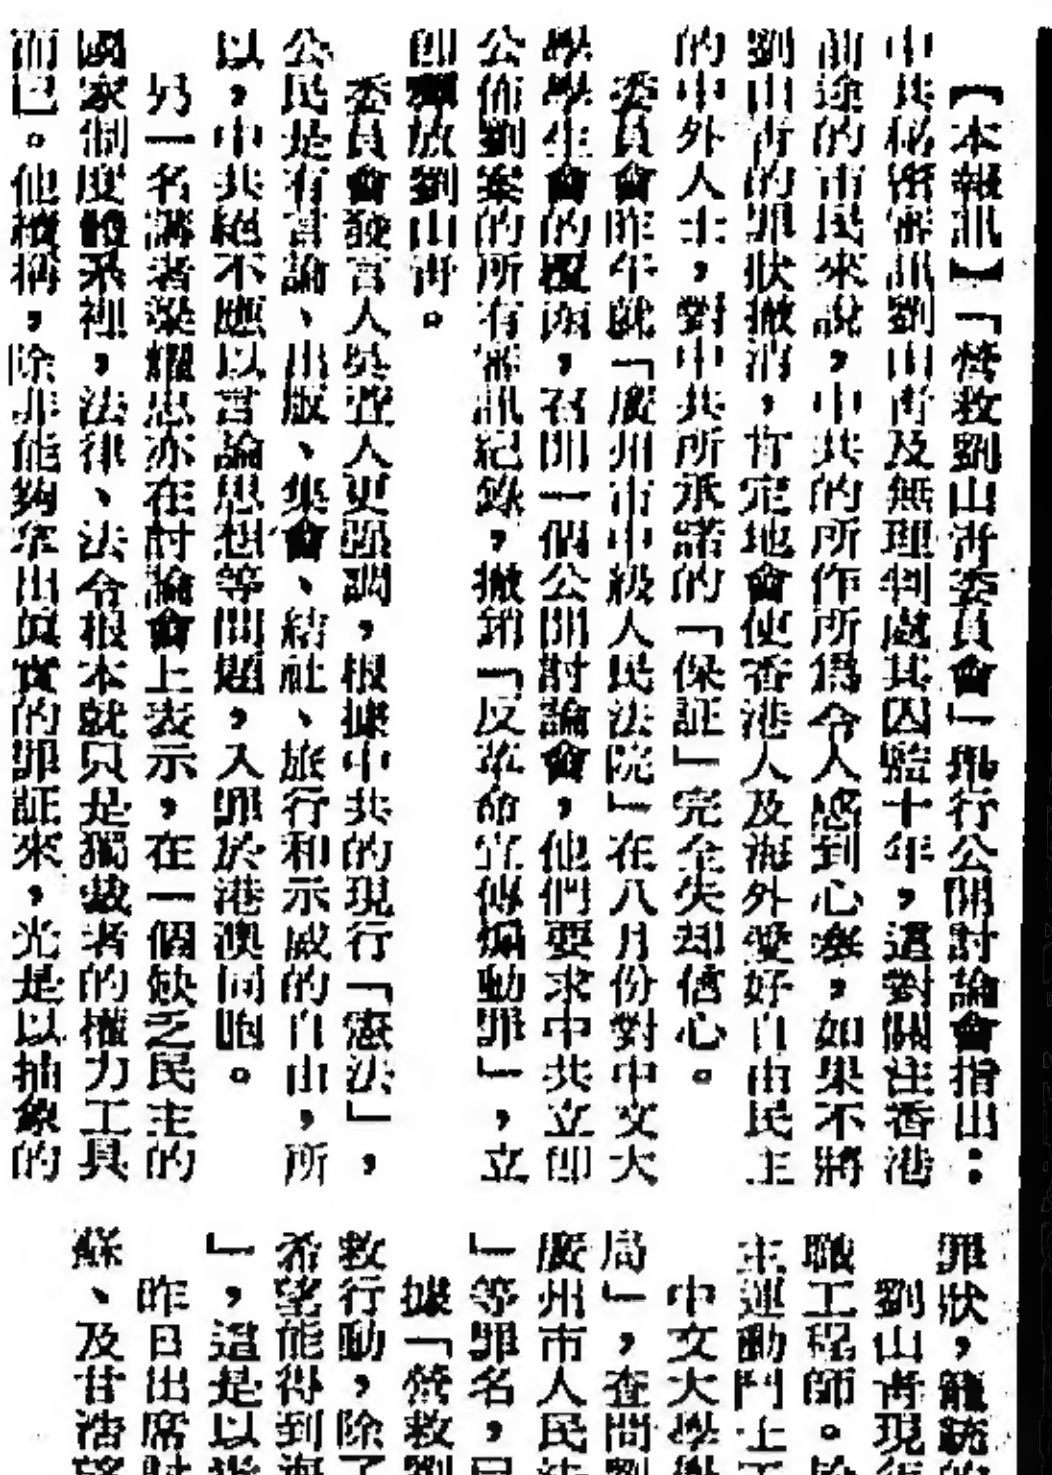 【本報訊】「營救劉山青委員會」舉行公開討論會指出：
中共秘密審訊劉山青及無理判處其囚監十年，這對關注香港
前途的市民來說，中共的所作所為令人感到心寒，如果不將
劉山青的罪狀撤消，肯定地會使香港人及海外愛好自由民主
的中外人士，對中共所承諾的「保証」完全失却信心。
委員會昨午就「廣州市中級人民法院」在八月份對中文大
學學生會的覆函，召開一個公開討論會，他們要求中共立即
公佈劉案的所有審訊紀錄，撤銷「反革命宣傳煽動罪」，立
即釋放劉山青。
委員會發言人吳萱人更强調，根據中共的現行「憲法」，
公民是有言論、出版、集會、結社、旅行和示威的自由，所
以，中共絕不應以言論思想等問題，入罪於港澳同胞。
另一名講者梁耀忠亦在討論會上表示，在一個缺乏民主的
國家制度體系裡，法律、法令根本就只是獨裁者的權力工具
而已。他續稱，除非能夠拿出眞實的罪証來，光是以抽象的
罪狀，籠統的
劉山青現年
職工程師。於
主運動鬥士
中文大學學
局」，查問劉
廣州市人民法
」等罪名，已
據「營救劉
救行動，除了
希望能得到海
」，這是以
昨日出席討
蘇、及甘浩望